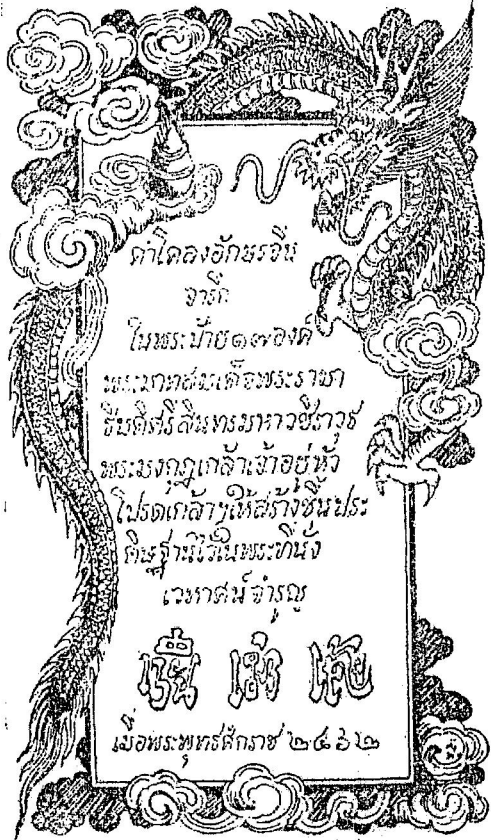 คำโคลงอักษรจีน
จารึก
ในพระป้าย๑๗องค์
พระบาทสมเด็จพระรามา
ธิบดีศรีสินทรมหาวชิราวุธ
พระมงกุฎเกล้าเจ้าอยู่หัว
โปรดเกล้าฯให้สร้างขึ้นประ
ดิษฐานไว้ในพระที่นั่ง
เวหาศน์จำรูญ
เมื่อพระพุทธศักราช ๒๔๖๒